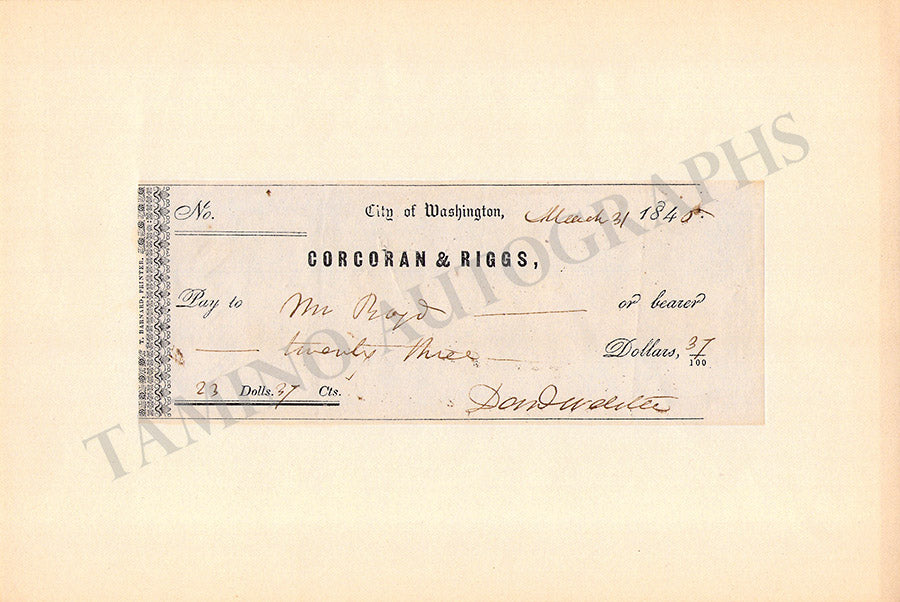 No. City of Washington, March 31 1848.
CORCORAN & RIGGS,
Pay to Mr Boyd or bearer
twenty three Dollars, 37/100
23 Dolls. 37 Cts.
Danl Webster
T. BARNARD, PRINTER.
TAMINO AUTOGRAPHS